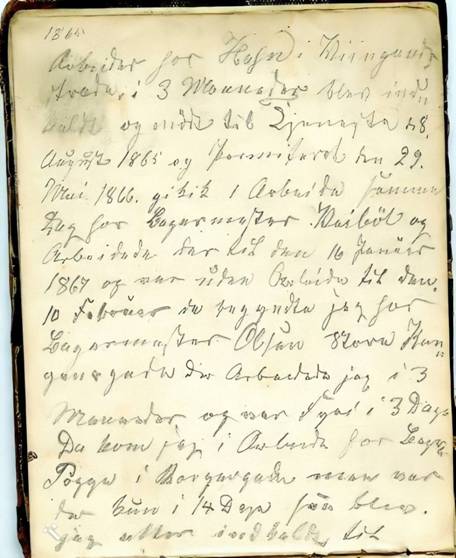 1865
Arbeidet hos Hahn i Wiingaards
stræde, i 3 Maaneder blev ind
kaldt og mødt til Tjeneste d 8.
August 1865 og Permiteret den 29.
Mai 1866. gik i Arbeide samme
Dag hos Bagermester Weiböl og
Arbeidede der til den 16 Januar
1867 og var uden Arbeide til den
10 Februar da begyndte jeg hos
Bagermester Olsen Store Kon
gensgade der Arbeidede jeg i 3
Maaneder og var Fri i 3 Dage
Da kom jeg i Arbeide hos Bager
Pogge i Borgergade men var
der kun i 14 Dage saa blev
jeg atter indkaldt til